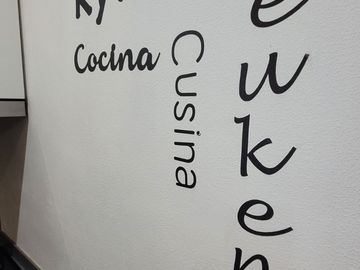 Ky
Cocina
Cusina
euken